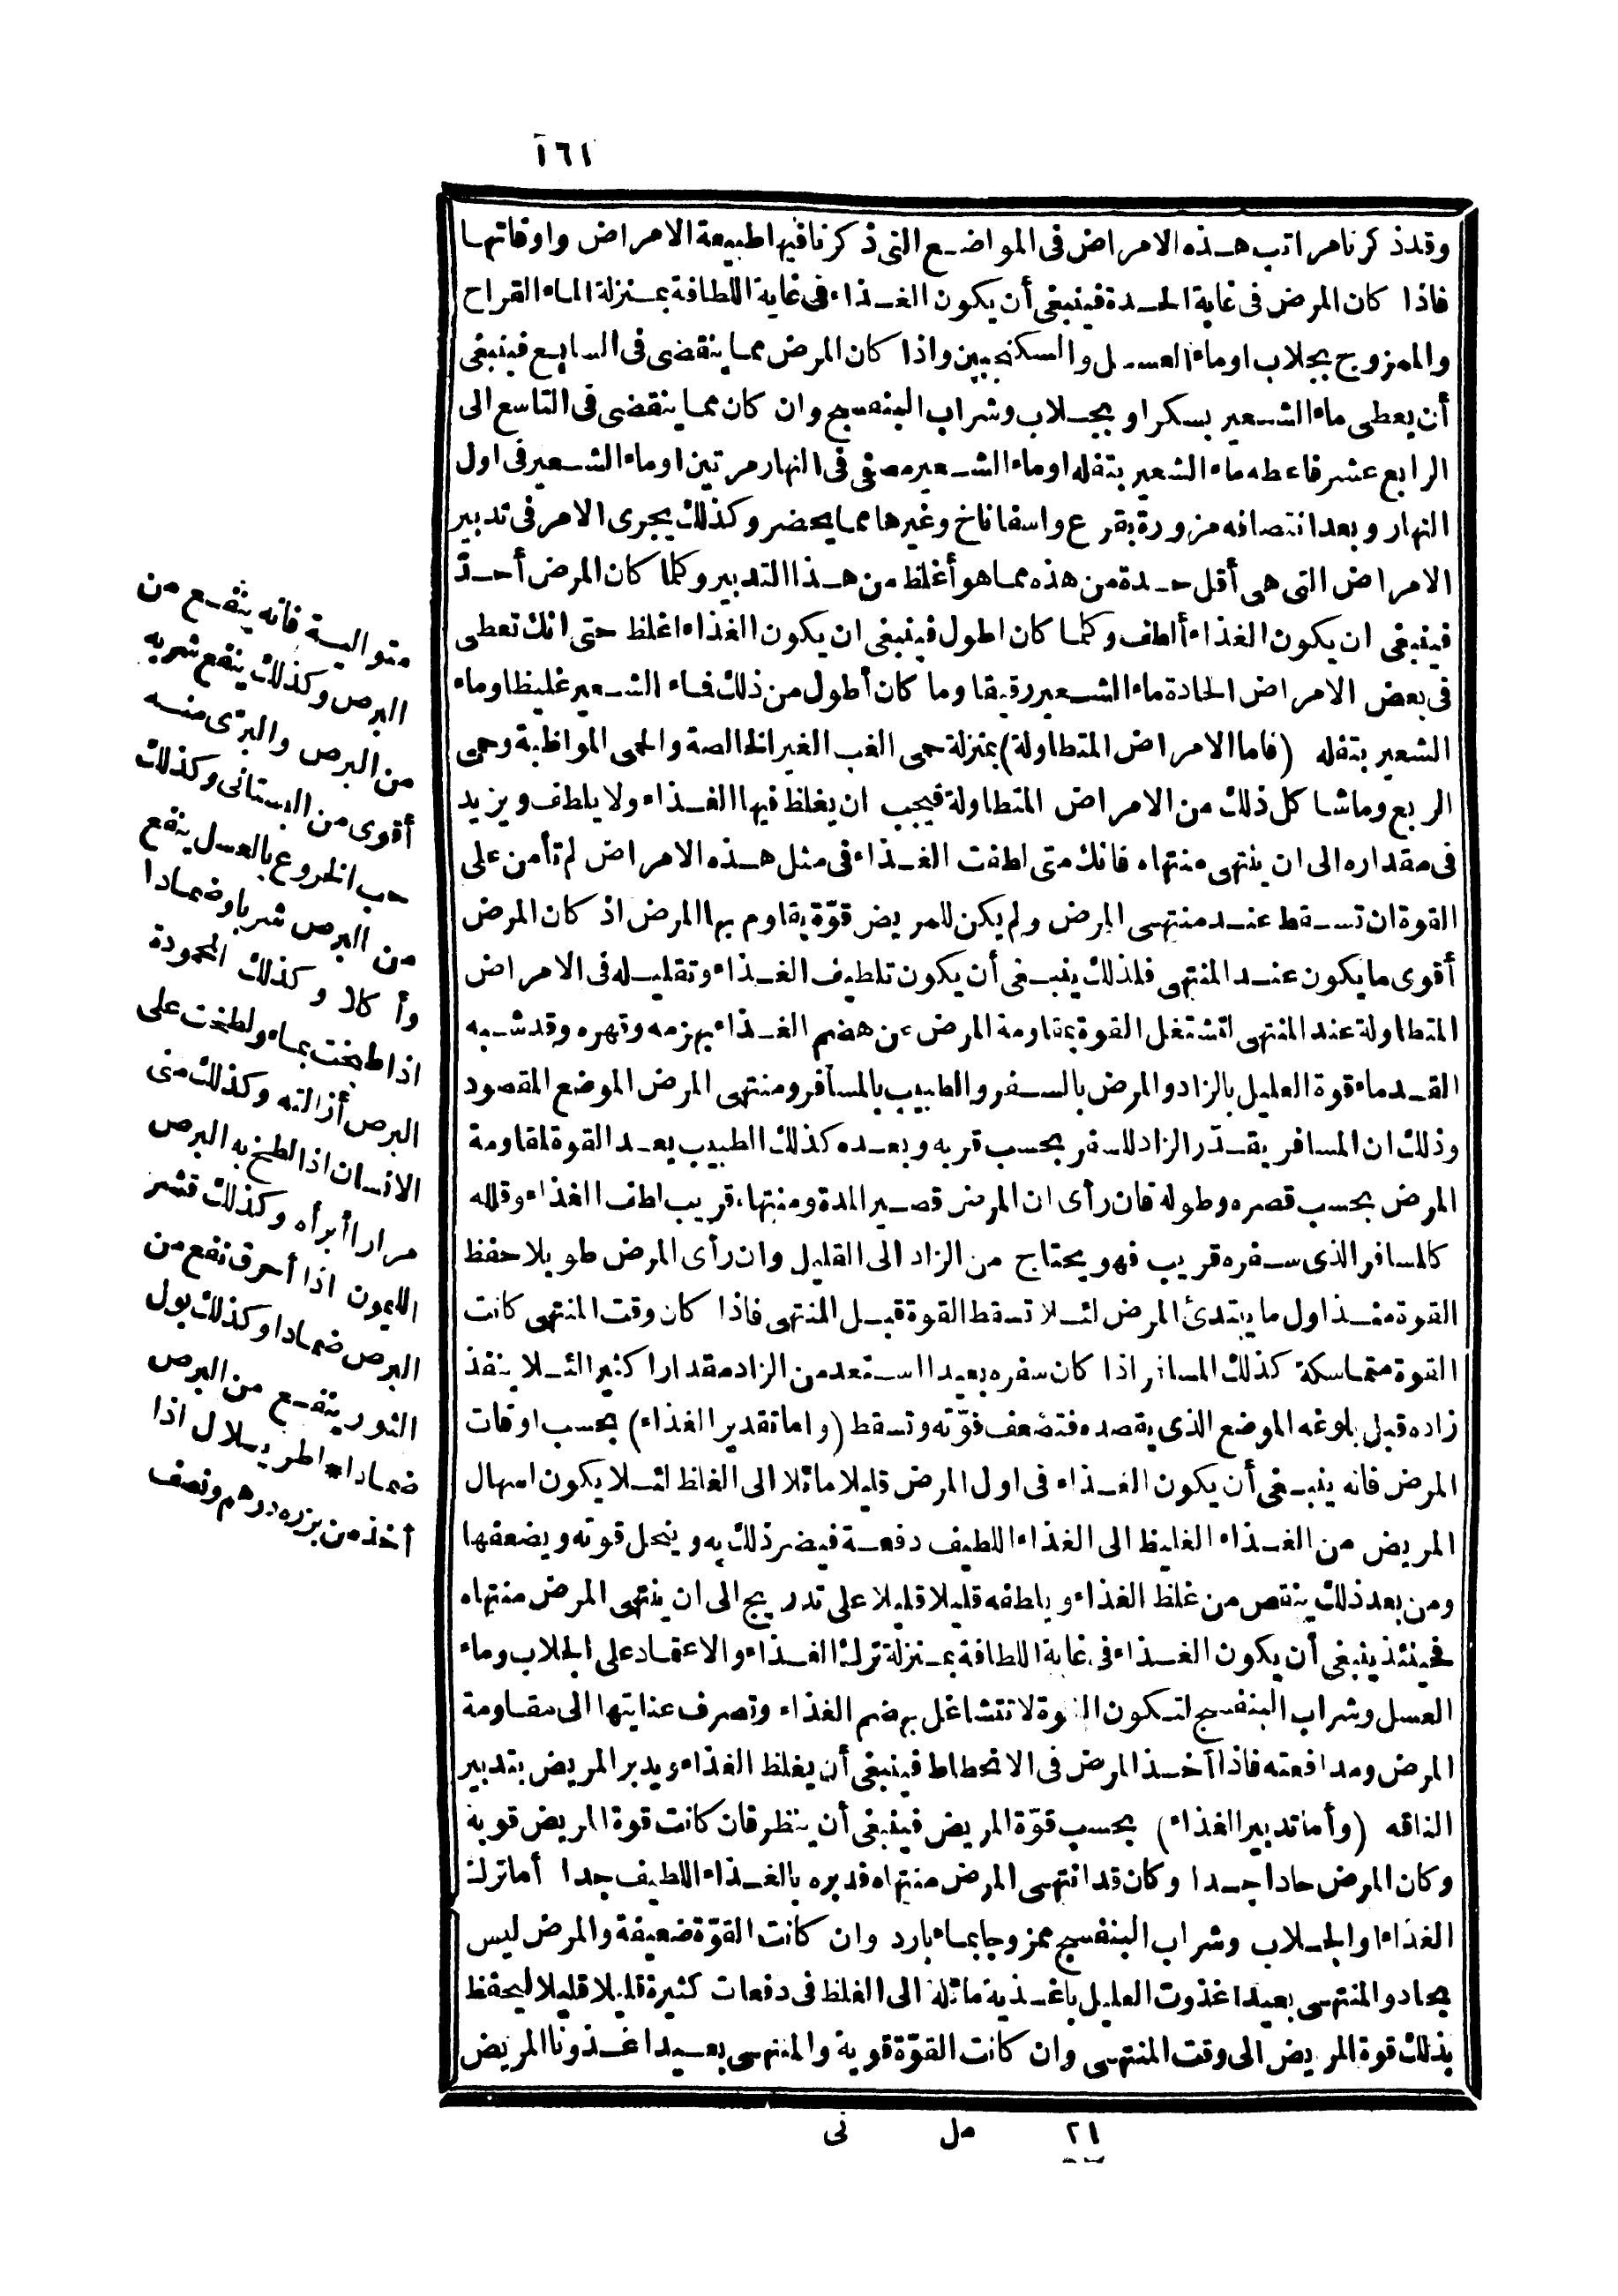 ١٦١
وقد ذكرنا مراتب هذه الامراض فى المواضع التى ذكرنا فيها طبيعة الامراض واوقاتها
فاذا كان المرض فى غاية الحدة فينبغى أن يكون الغذاء فى غاية اللطافة بمنزلة الماء القراح
والممزوج بجلاب اوماء العسل والسكنجبين واذا كان المرض مما ينقضى فى السابع فينبغى
أن يعطى ماء الشعير بسكر او بجلاب وشراب البنفسج وان كان مما ينقضى فى التاسع الى
الرابع عشر فاعطه ماء الشعير بتفله اوماء الشعير مصفى فى النهار مرتين اوماء الشعير فى اول
النهار وبعد انتصافه مزورة بقرع واسفاناخ وغيرها مما يحضر وكذلك يجرى الامر فى تدبير
الامراض التى هى أقل حدة من هذه مما هو أغلظ من هذا التدبير وكلما كان المرض أحدّ
فينبغى ان يكون الغذاء ألطف وكلما كان اطول فينبغى ان يكون الغذاء اغلظ حتى انك تعطى
فى بعض الامراض الحادة ماء الشعير رقيقا وما كان أطول من ذلك فماء الشعير غليظا وماء
الشعير بتفله (فاما الامراض المتطاولة) بمنزلة حمى الغب الغير الخالصة والحمى المواظبة وحمى
الربع وما شا كل ذلك من الامراض المتطاولة فيجب ان يغلظ فيها الغذاء ولا يلطف ويزيد
فى مقداره الى ان ينتهى منتهاه فانك متى لطفت الغذاء فى مثل هذه الامراض لم تأمن على
القوة ان تسقط عند منتهى المرض ولم يكن للمريض قوّة يقاوم بها المرض اذ كان المرض
أقوى ما يكون عند المنتهى فلذلك ينبغى أن يكون تلطيف الغذاء وتقليله فى الامراض
المتطاولة عند المنتهى لتشتغل القوة بمقاومة المرض عن هضم الغذاء بهزمه وقهره وقد شبه
القدماء قوة العليل بالزاد والمرض بالسفر والطبيب بالمسافر ومنتهى المرض الموضع المقصود
وذلك ان المسافر يقدّر الزاد للسفر بحسب قربه وبعده كذلك الطبيب يعد القوة لمقاومة
المرض بحسب قصره وطوله فان رأى ان المرض قصير المدة ومنتهاه قريب لطف الغذاء وقلله
كالمسافر الذى سفره قريب فهو يحتاج من الزاد الى القليل وان رأى المرض طويلا حفظ
القوة منذ اول ما يبتدئ المرض لئلا تسقط القوة قبل المنتهى فاذا كان وقت المنتهى كانت
القوة متماسكة كذلك المسافر اذا كان سفره بعيدا استعد من الزاد مقدارا كثيرا لئلا ينفذ
زاده قبل بلوغه الموضع الذى يقصده فتضعف قوّته وتسقط (واما تقدير الغذاء) بحسب اوقات
المرض فانه ينبغى أن يكون الغذاء فى اول المرض قليلا مائلا الى الغلظ لئلا يكون
المريض من الغذاء الغليظ الى الغذاء اللطيف دفعة فيضر ذلك به وينحل قوته ويضعفها
ومن بعد ذلك ينقص من غلظ الغذاء ويلطفه قليلا قليلا على تدريج الى ان ينتهى المرض منتهاه
فحينئذ ينبغى أن يكون الغذاء فى غاية اللطافة بمنزلة ترك الغذاء والاعتماد على الجلاب وماء
العسل وشراب البنفسج لتكون القوة لا تتشاغل بهضم الغذاء وتصرف عنايتها الى مقاومة
المرض ومدافعته فاذا آخذ المرض فى الانحطاط فينبغى أن يغلظ الغذاء ويدبر المريض بتدبير
الناقه (وأما تدبير الغذاء) بحسب قوّة المريض فينبغى أن ينظر فان كانت قوة المريض قوية
وكان المرض حادا جدا وكان قد انتهى المرض منتهاه فدبره بالغذاء اللطيف جدا أما ترك
الغذاء او الجلاب وشراب البنفسج ممزوجا بماء بارد وان كانت القوّة ضعيفة والمرض ليس
بحاد والمنتهى بعيدا غذوت العليل باغذية مائلة الى الغلظ فى دفعات كثيرة قليلا قليلا ليحفظ
بذلك قوة المريض الى وقت المنتهى وان كانت القوّة قوية والمنتهى بعيدا غذونا المريض
متوالية فانه ينفع من
البرص وكذلك ينفع شربه
من البرص والبرّى منه
أقوى من البستانى وكذلك
حب الخروع بالعسل ينفع
من البرص شربا وضمادا
وأكلا وكذلك المحمودة
اذا طبخت بماء ولطخت على
البرص أزالته وكذلك منى
الانسان اذا لطخ به البرص
مرارا أبرأه وكذلك قشر
الليمون اذا أحرق نفع من
البرص ضمادا وكذلك بول
الثور ينفع من البرص
ضمادا* اطريلال اذا
أخذ من بزره درهم ونصف
٢١ مل نى